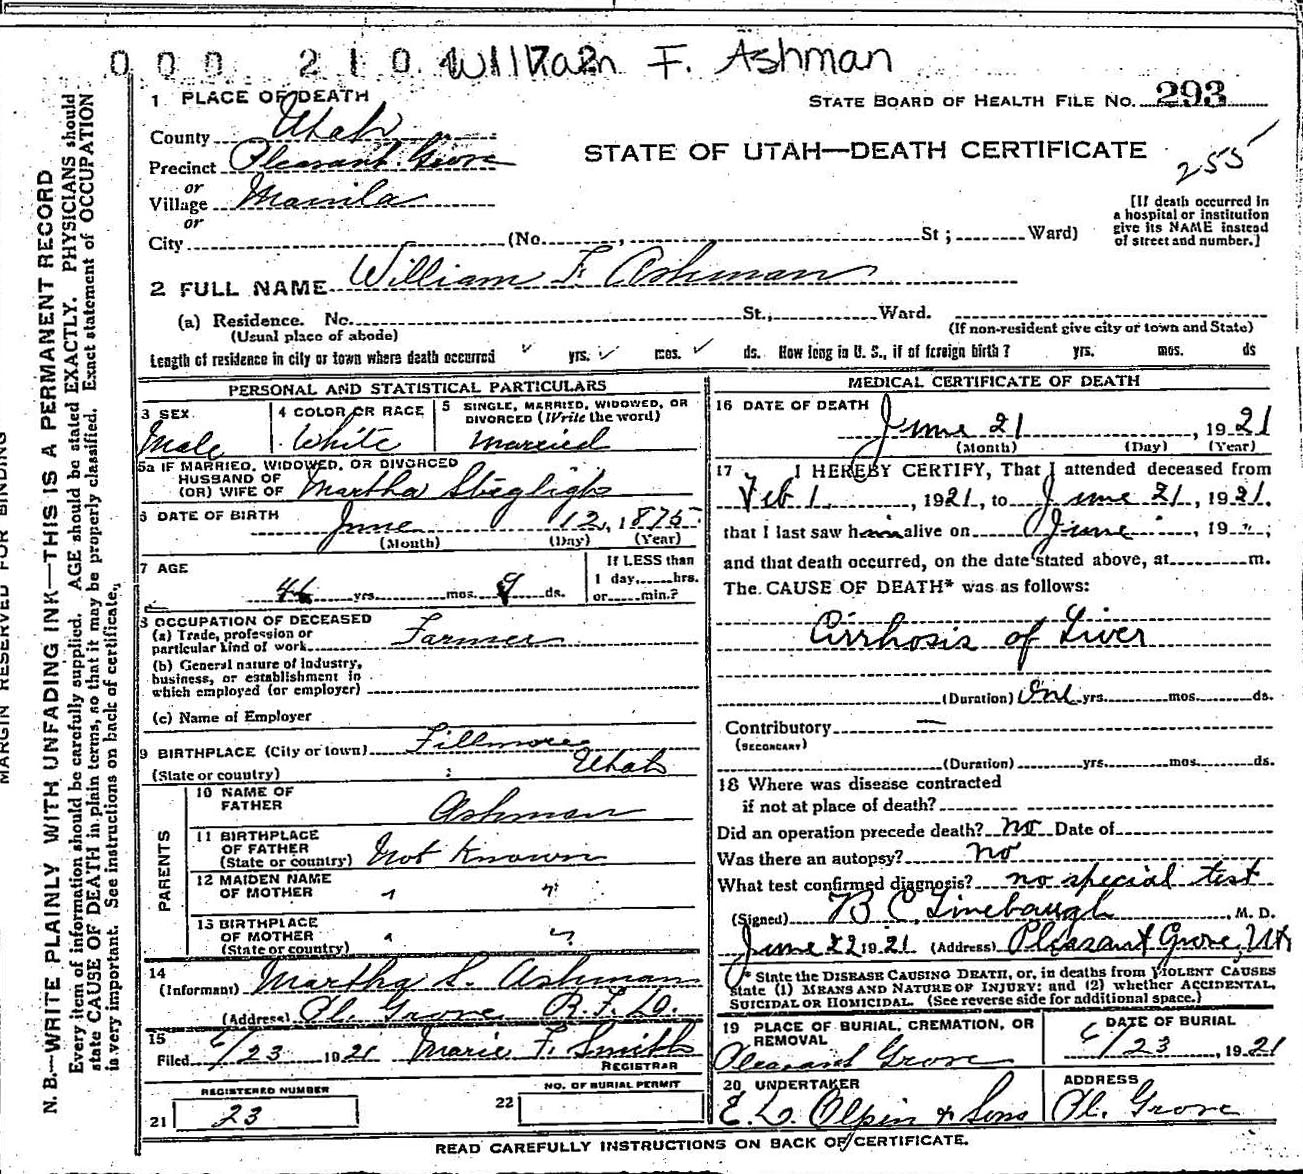 000 210 William F. Ashman
1 PLACE OF DEATH
STATE BOARD OF HEALTH FILE NO. 293
County Utah
STATE OF UTAH—DEATH CERTIFICATE
255
Precinct Pleasant Grove
or
Village Manila
or
City (No. , St; Ward)
[If death occurred in
a hospital or institution
give its NAME instead
of street and number.]
2 FULL NAME William F Ashman
(a) Residence. No. St., Ward.
(Usual place of abode) (If non-resident give city or town and State)
Length of residence in city or town where death occurred yrs. mos. ds. How long in U. S., if of foreign birth? yrs. mos. ds
PERSONAL AND STATISTICAL PARTICULARS
3 SEX
Male
4 COLOR OR RACE
White
5 SINGLE, MARRIED, WIDOWED, OR
DIVORCED (Write the word)
Married
5a IF MARRIED, WIDOWED, OR DIVORCED
HUSBAND OF
(OR) WIFE OF Martha
6 DATE OF BIRTH June 12, 1875
(Month) (Day) (Year)
7 AGE
46 yrs. mos. 9 ds.
If LESS than
1 day, hrs.
or min.?
8 OCCUPATION OF DECEASED
(a) Trade, profession or
particular kind of work Farmer
(b) General nature of industry,
business, or establishment in
which employed (or employer)
(c) Name of Employer
9 BIRTHPLACE (City or town) Fillmore
(State or country) Utah
PARENTS
10 NAME OF
FATHER Ashman
11 BIRTHPLACE
OF FATHER
(State or country) Not Known
12 MAIDEN NAME
OF MOTHER " "
13 BIRTHPLACE
OF MOTHER
(State or country) " "
14
(Informant) Martha S. Ashman
(Address) Pl. Grove R.F.D.
15
Filed 6/23 1921 Marie F. Smith
REGISTRAR
REGISTERED NUMBER
21 23
NO. OF BURIAL PERMIT
22
MEDICAL CERTIFICATE OF DEATH
16 DATE OF DEATH
June 21, 1921
(Month) (Day) (Year)
17 I HEREBY CERTIFY, That I attended deceased from
Feb 1, 1921, to June 21, 1921,
that I last saw him alive on June ", 19 ";
and that death occurred, on the date stated above, at m.
The CAUSE OF DEATH* was as follows:
Cirrhosis of Liver
(Duration) One yrs. mos. ds.
Contributory —
(SECONDARY)
(Duration) yrs. mos. ds.
18 Where was disease contracted
if not at place of death?
Did an operation precede death? no Date of
Was there an autopsy? no
What test confirmed diagnosis? no special test
(Signed) B C Linebaugh, M. D.
June 22 1921 (Address) Pleasant Grove, Ut
* State the DISEASE CAUSING DEATH, or, in deaths from VIOLENT CAUSES
state (1) MEANS AND NATURE OF INJURY; and (2) whether ACCIDENTAL,
SUICIDAL OR HOMICIDAL. (See reverse side for additional space.)
19 PLACE OF BURIAL, CREMATION, OR
REMOVAL
Pleasant Grove
DATE OF BURIAL
6/23, 1921
20 UNDERTAKER
E. L. Olpin & Sons
ADDRESS
Pl. Grove
READ CAREFULLY INSTRUCTIONS ON BACK OF CERTIFICATE.
MARGIN RESERVED FOR BINDING
N. B.—WRITE PLAINLY WITH UNFADING INK—THIS IS A PERMANENT RECORD
Every item of information should be carefully supplied. AGE should be stated EXACTLY. PHYSICIANS should
state CAUSE OF DEATH in plain terms, so that it may be properly classified. Exact statement of OCCUPATION
is very important. See instructions on back of certificate.